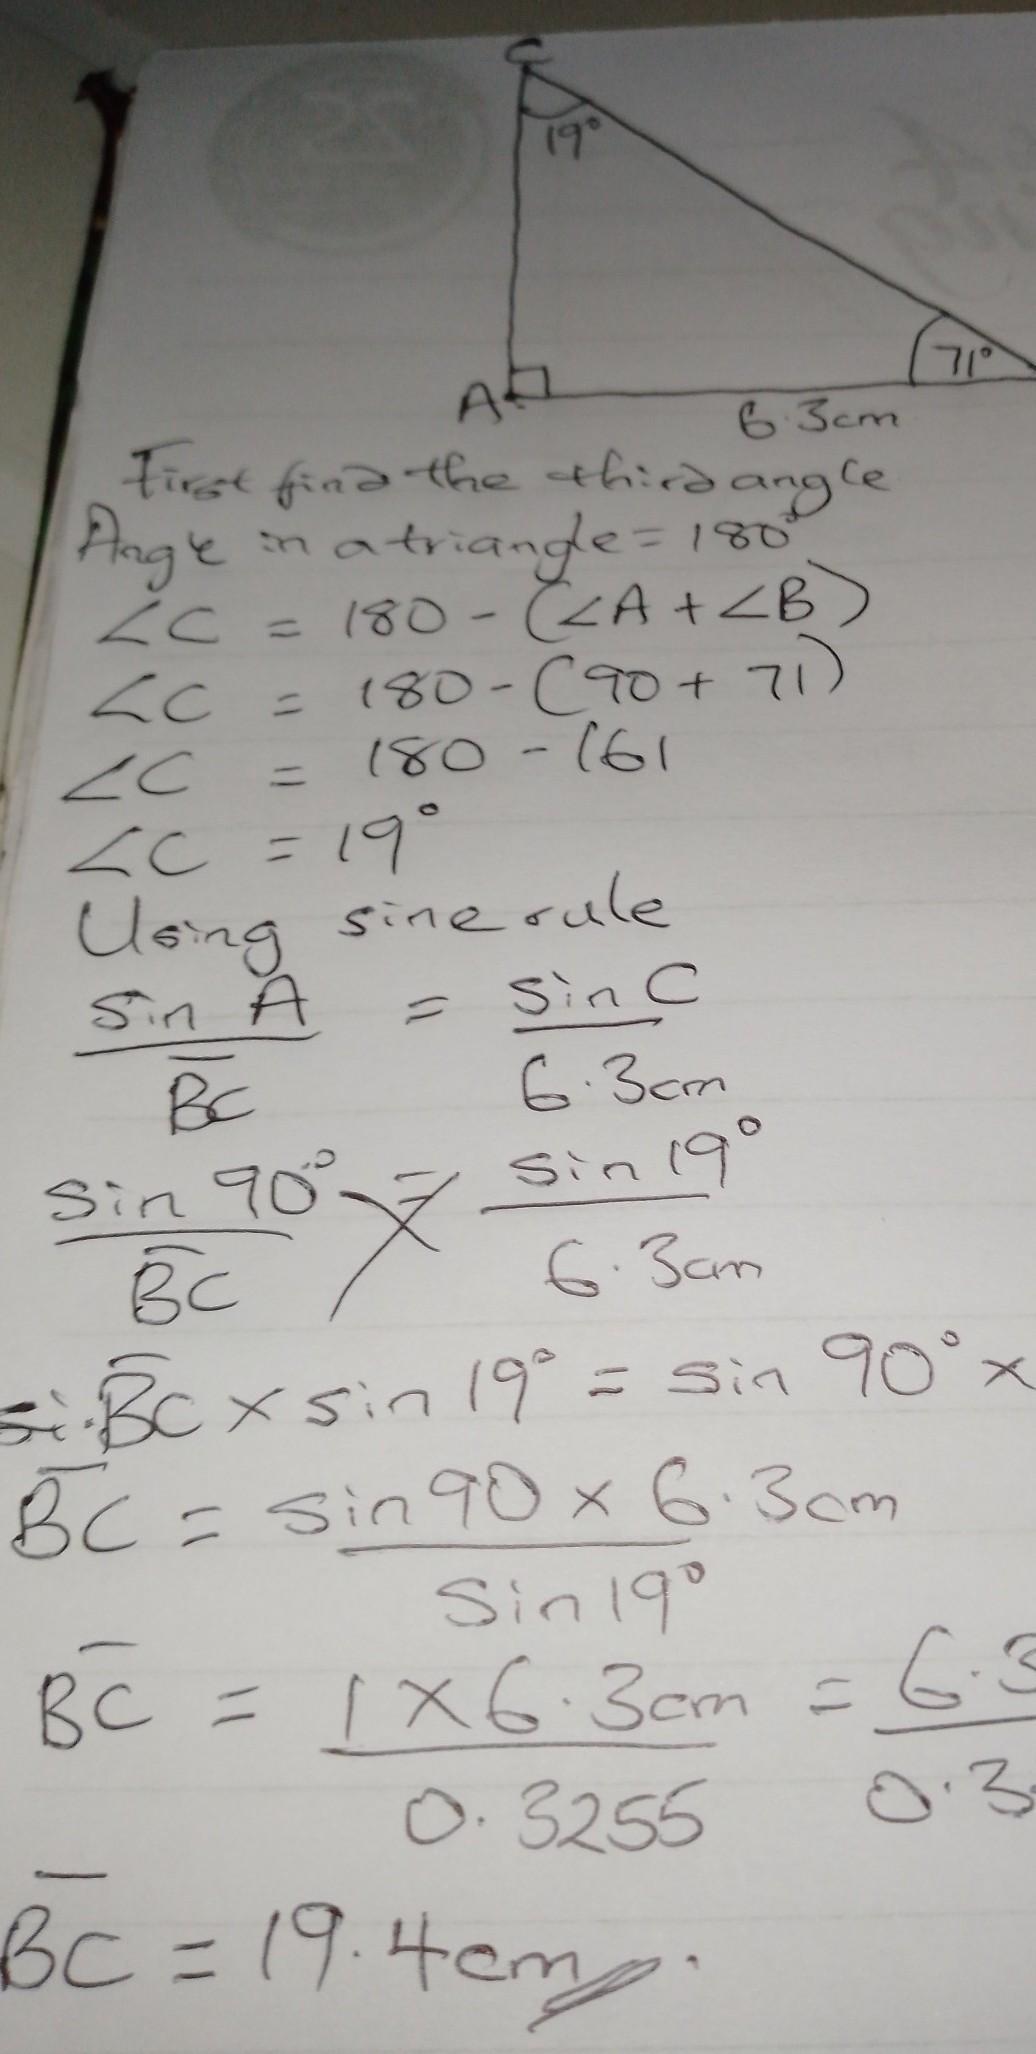 C
19°
71°
A
6.3cm
First find the third angle
Angle in a triangle = 180°
∠C = 180 - (∠A + ∠B)
∠C = 180 - (90 + 71)
∠C = 180 - 161
∠C = 19°
Using sine rule
sin A = sin C
BC 6.3cm
sin 90° = sin 19°
BC 6.3cm
BC × sin 19° = sin 90° ×
BC = sin 90 × 6.3cm
sin 19°
BC = 1 × 6.3cm = 6.3
0.3255 0.3
BC = 19.4cm